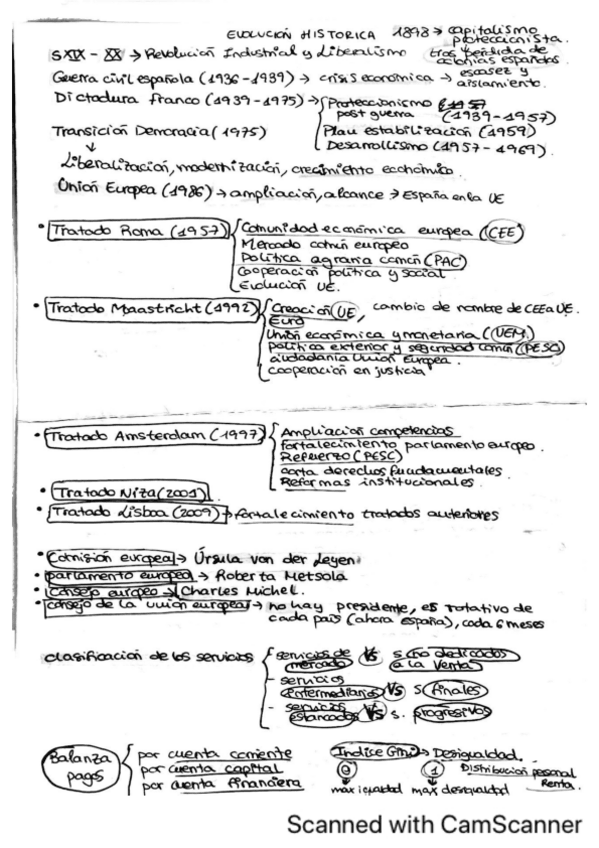 EVOLUCIÓN HISTORICA 1898 → capitalismo proteccionista.
SXIX - XX → Revolución Industrial y Liberalismo tras pérdida de colonias españolas
Guerra civil española (1936 - 1939) → crisis económica → escasez y aislamiento.
Dictadura Franco (1939 - 1975) → Proteccionismo
post guerra (1939 - 1957)
Transición Democracia (1975) Plan estabilización (1959)
Desarrollismo (1957 - 1969).
Liberalización, modernización, crecimiento económico.
Unión Europea (1986) → ampliación, alcance → España en la UE
• Tratado Roma (1957) Comunidad económica europea (CEE)
Mercado común europeo
Política agraria común (PAC)
Cooperación política y social
Evolución UE.
• Tratado Maastricht (1992) Creación UE, cambio de nombre de CEE a UE.
Euro
Unión económica y monetaria (UEM)
política exterior y seguridad común (PESC)
ciudadanía Unión Europea.
cooperación en justicia
• Tratado Amsterdam (1997) Ampliación competencias
fortalecimiento parlamento europeo.
Refuerzo (PESC)
carta derechos fundamentales
Reformas institucionales.
• Tratado Niza (2001)
• Tratado Lisboa (2009) → fortalecimiento tratados anteriores
• Comisión europea → Úrsula von der Leyen
• parlamento europeo → Roberta Metsola
• consejo europeo → Charles Michel.
• consejo de la unión europea → no hay presidente, es rotativo de
cada país (ahora españa), cada 6 meses
clasificación de los servicios servicios de mercado Vs s no dedicados a la venta
- servicios intermediarios Vs s finales
- servicios estancados Vs s. progresivos
Balanza pagos por cuenta corriente
por cuenta capital
por cuenta financiera
Indice Gini → Desigualdad.
0 1 Distribución personal Renta.
max igualdad max desigualdad
Scanned with CamScanner